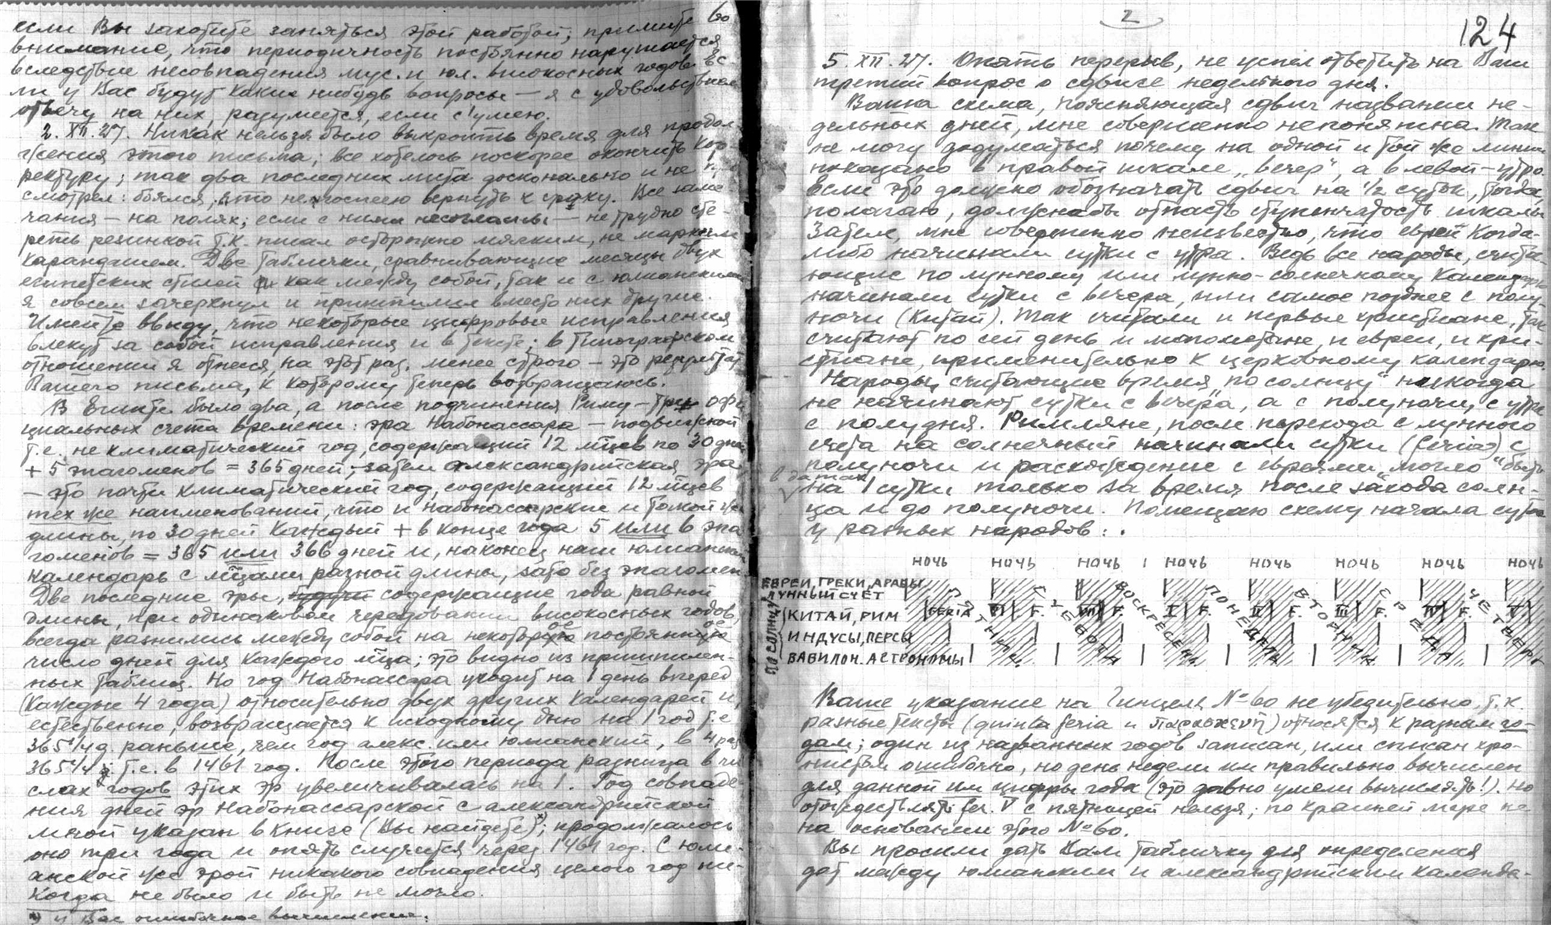 если Вы захотите заняться этой работой, примите во
внимание, что периодичность постоянно нарушается
вследствие несовпадения мус. и юл. високосных годов. Ес
ли у Вас будут какие нибудь вопросы — я с удовольствием
отвечу на них, разумеется, если сумею.
2.XII.27. Никак нельзя было выкроить время для продол
жения этого письма; все хотелось поскорее окончить кор
ректуру; так два последних листа досконально и не
смотрел: боялся, что не поспею вернуть к сроку. Все заме
чания — на полях; если с ними несогласны — не трудно сте-
реть резинкой т.к. писал осторожно мягким, не марким
карандашем. Две таблички, сравнивающие месяцы двух
египетских стилей как между собой, так и с юлианским
я совсем зачеркнул и пришпилил вместо них другие.
Имейте ввиду, что некоторые цифровые исправления
влекут за собой исправления и в тексте; в типографском
отношении я отнесся, на этот раз, менее строго — это результат
Вашего письма, к которому теперь возвращаюсь.
В Египте было два, а после подчинения Риму — три офи
циальных счета времени: эра Набонассара — подвижной
т.е. не климатический год, содержащий 12 мцев по 30 дней
+ 5 эпагоменов = 365 дней; затем александрийская эра
— это почти климатический год, содержащий 12 мцев
тех же наименований, что и Набонассарские и такой же
длины, по 30 дней каждый + в конце года 5 или 6 эпа
гоменов = 365 или 366 дней и, наконец наш юлианский
календарь с мцами разной длины, зато без эпагомен
Две последние эры, содержащие года равной
длины, при одинаковом чередовании високосных годов,
всегда разнились между собой на некоторое постоянное
число дней для каждого мца; это видно из пришпилен-
ных таблиц. Но год Набонассара уходит на 1 день вперед
(каждые 4 года) относительно двух других календарей и,
естественно, возвращается к исходному дню на 1 год т.е.
365¼ д. раньше, чем год алекс. или юлианский, в 4 раз
365¼, т.е. в 1461 год. После этого периода разница в чи
слах годов этих эр увеличивалась на 1. Год совпаде
ния дней эр Набонассарской с александрийской
мной указан в книге (Вы найдете)*); продолжалось
оно три года и опять случится через 1461 год. С юли-
анской же эрой никакого совпадения целого год ни-
когда не было и быть не могло.
*) у Вас ошибочное вычисление.
2
124
5.XII.27. Опять перерыв, не успел ответить на Ваш
третий вопрос о сдвиге недельного дня.
Ваша схема, поясняющая сдвиг названий не-
дельных дней, мне совершенно непонятна. Так
не могу додуматься почему на одной и той же линии
показано в правой шкале „вечер“, а в левой — утро.
Если это должно обозначать сдвиг на ½ суток, тогда,
полагаю, должна бы отпасть ступенчатость шкалы.
Затем, мне совершенно неизвестно, что евреи когда-
либо начинали сутки с утра. Ведь все народы, счита-
ющие по лунному или лунно-солнечному календарю
начинали сутки с вечера, или самое позднее с полу-
ночи (Китай). Так считали и первые христиане, так
считают по сей день и магометане, и евреи, и хри-
стиане, применительно к церковному календарю.
Народы, считающие время „по солнцу“ никогда
не начинают сутки с вечера, а с полуночи, с утра
с полудня. Римляне, после перехода с лунного
счета на солнечный начинали сутки (feriae) с
полуночи и расхождение с евреями „могло“ быть
в датах
на 1 сутки только за время после захода солн-
ца и до полуночи. Помещаю схему начала суток
у разных народов:
НОЧЬ НОЧЬ НОЧЬ НОЧЬ НОЧЬ НОЧЬ НОЧЬ НОЧЬ
ЕВРЕИ, ГРЕКИ, АРАБЫ
ЛУННЫЙ СЧЕТ
ПО СОЛНЦУ
КИТАЙ, РИМ FERIA VI F. VII F. I F. II F. III F. IV F. V
ИНДУСЫ, ПЕРСЫ
ВАВИЛОН. АСТРОНОМЫ
ПЯТНИЦА СУББОТА ВОСКРЕСЕНЬ ПОНЕДЕЛЬ ВТОРНИК СРЕДА ЧЕТВЕРГ
Ваше указание на Гинцеля № 60 не убедительно, т.к.
разные тексты (quinta feria и παρασκευή) относятся к разным го-
дам; один из названных годов записан, или списан хро-
нистом ошибочно, но день недели им правильно вычислен
для данной им цифры года (это давно умели вычислять!). Но
отождествлять fer. V с пятницей нельзя; по крайней мере не
на основании этого № 60.
Вы просили дать Вам табличку для определения
дат между юлианским и александрийским календа-